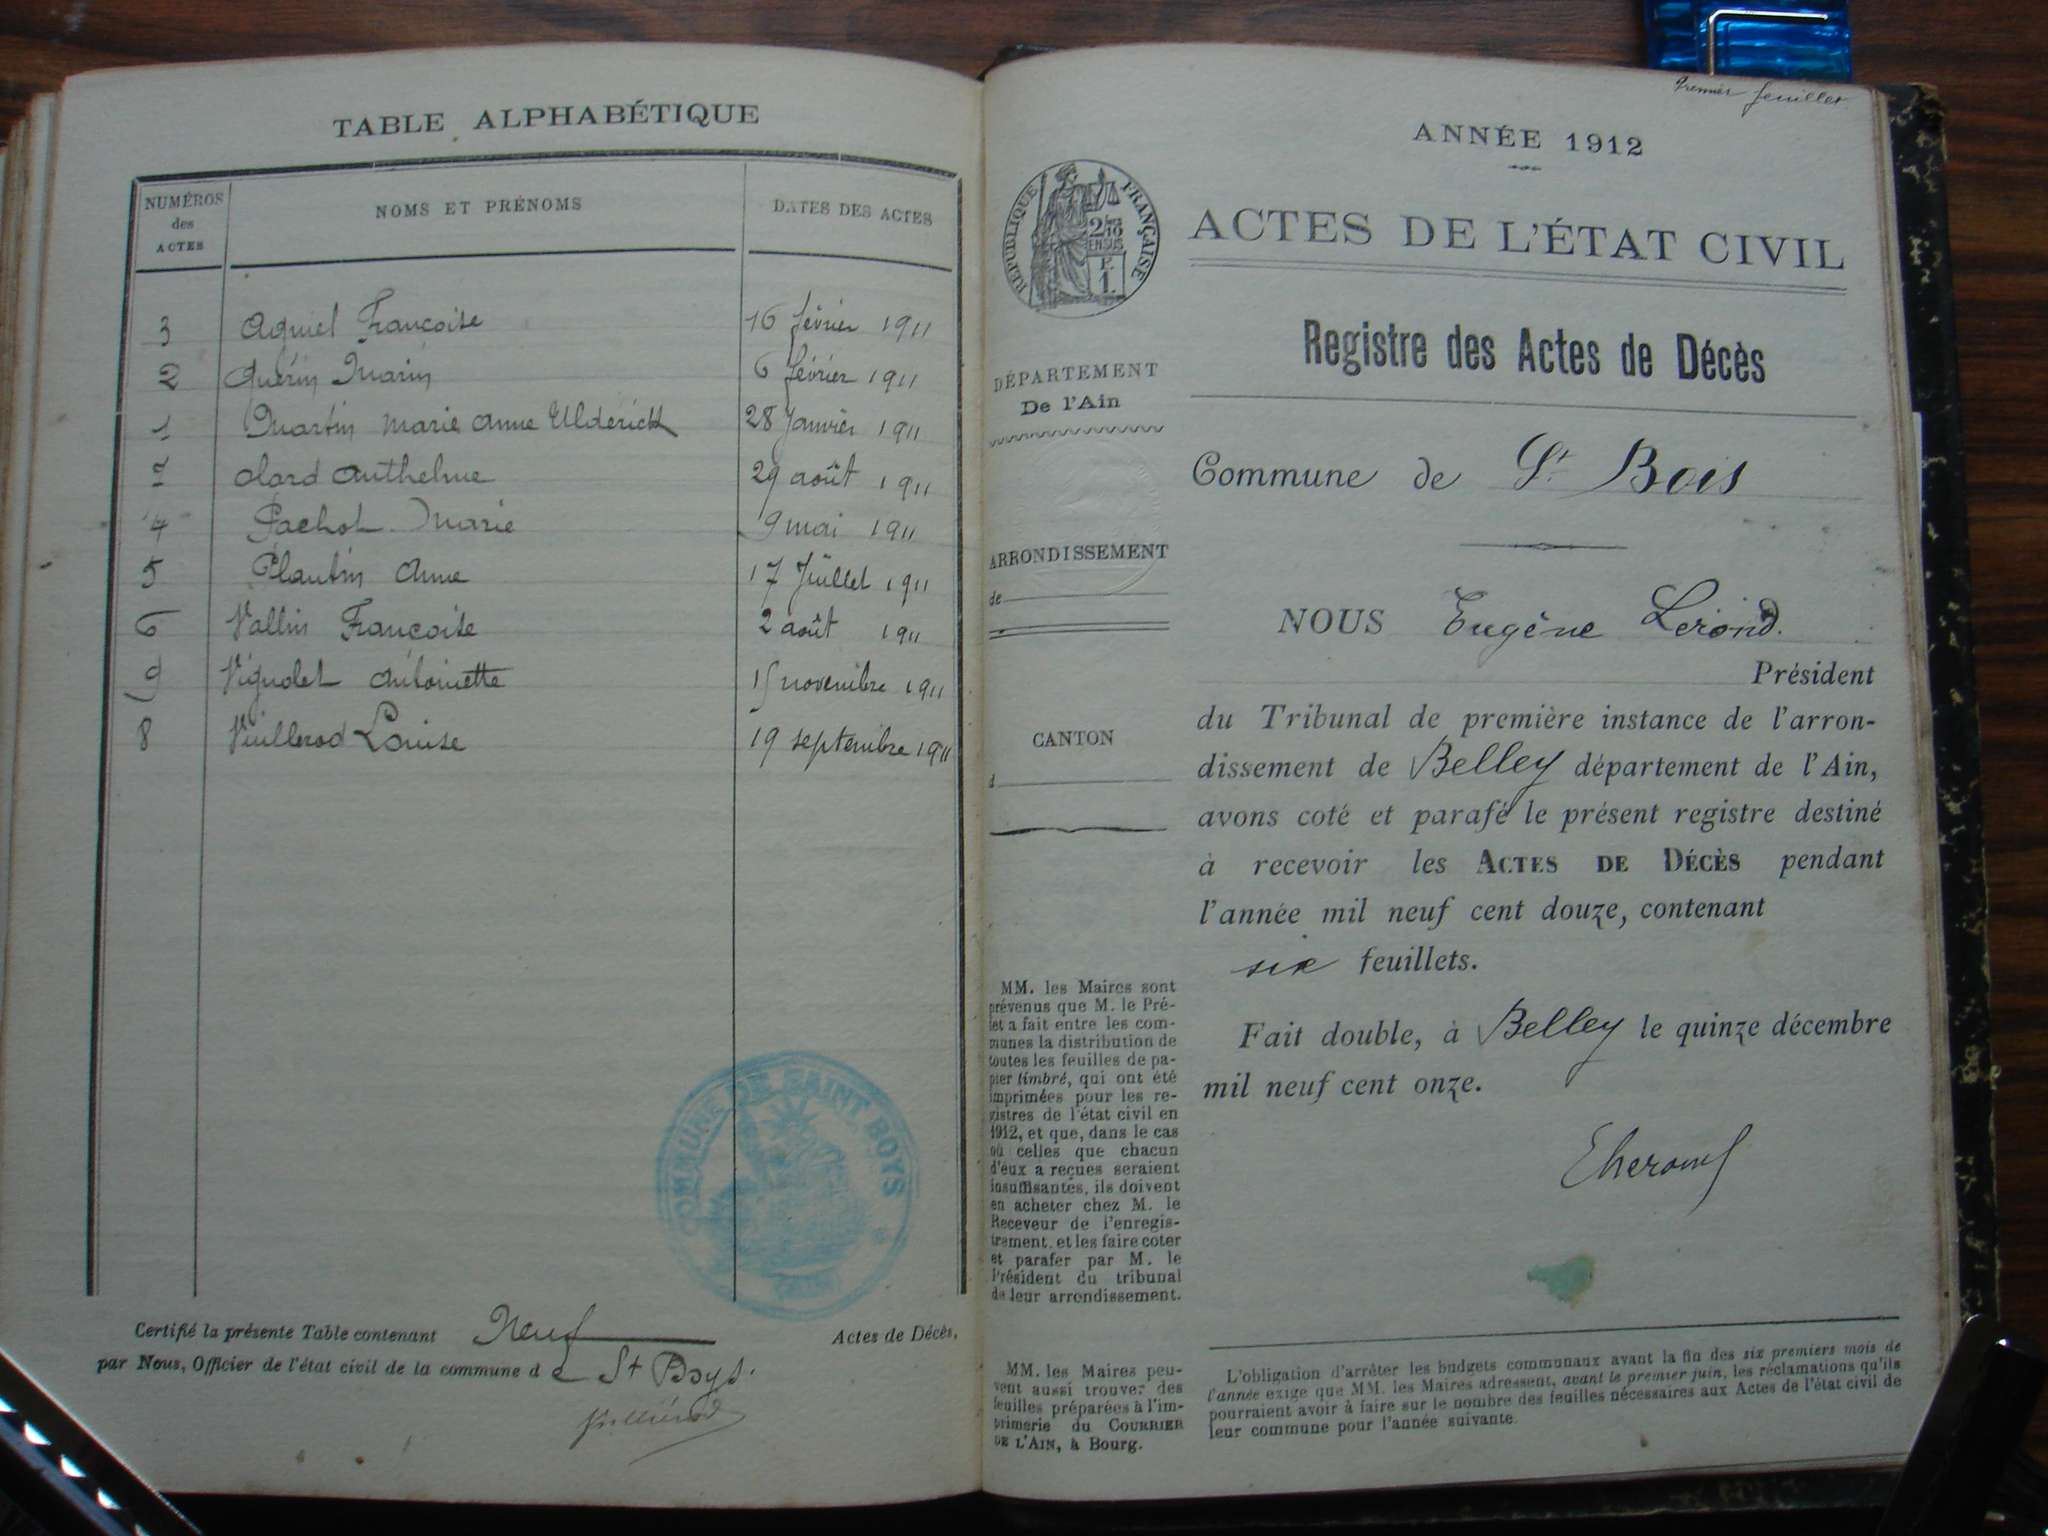 TABLE ALPHABÉTIQUE
NUMÉROS des ACTES
NOMS ET PRÉNOMS
DATES DES ACTES
3 Françoise 16 février 1911
2 Guérin Marin 6 février 1911
1 Martin Marie Anne Ulderick 28 Janvier 1911
7 olard anthelme 29 août 1911
4 Pachot Marie 9 mai 1911
5 Plantin Anne 17 Juillet 1911
6 Vallin Françoise 2 août 1911
9 Vignolet Antoinette 15 novembre 1911
8 Vuillerod Louise 19 septembre 1911
COMMUNE DE SAINT BOYS
Certifié la présente Table contenant Neuf Actes de Décès,
par Nous, Officier de l'état civil de la commune de St Boys.
Premier feuillet
ANNÉE 1912
RÉPUBLIQUE FRANÇAISE
2/10 EN SUS
P. 1.
ACTES DE L'ÉTAT CIVIL
Registre des Actes de Décès
DÉPARTEMENT
De l'Ain
Commune de St Bois
ARRONDISSEMENT
de
NOUS Eugène Lerond.
Président
CANTON
d
du Tribunal de première instance de l'arron-
dissement de Belley département de l'Ain,
avons coté et parafé le présent registre destiné
à recevoir les ACTES DE DÉCÈS pendant
l'année mil neuf cent douze, contenant
six feuillets.
Fait double, à Belley le quinze décembre
mil neuf cent onze.
MM. les Maires sont
prévenus que M. le Pré-
fet a fait entre les com-
munes la distribution de
toutes les feuilles de pa-
pier timbré, qui ont été
imprimées pour les re-
gistres de l'état civil en
1912, et que, dans le cas
où celles que chacun
d'eux a reçues seraient
insuffisantes, ils doivent
en acheter chez M. le
Receveur de l'enregis-
trement, et les faire coter
et parafer par M. le
Président du tribunal
de leur arrondissement.
MM. les Maires peu-
vent aussi trouver des
feuilles préparées à l'im-
primerie du COURRIER
DE L'AIN, à Bourg.
L'obligation d'arrêter les budgets communaux avant la fin des six premiers mois de
l'année exige que MM. les Maires adressent, avant le premier juin, les réclamations qu'ils
pourraient avoir à faire sur le nombre des feuilles nécessaires aux Actes de l'état civil de
leur commune pour l'année suivante.